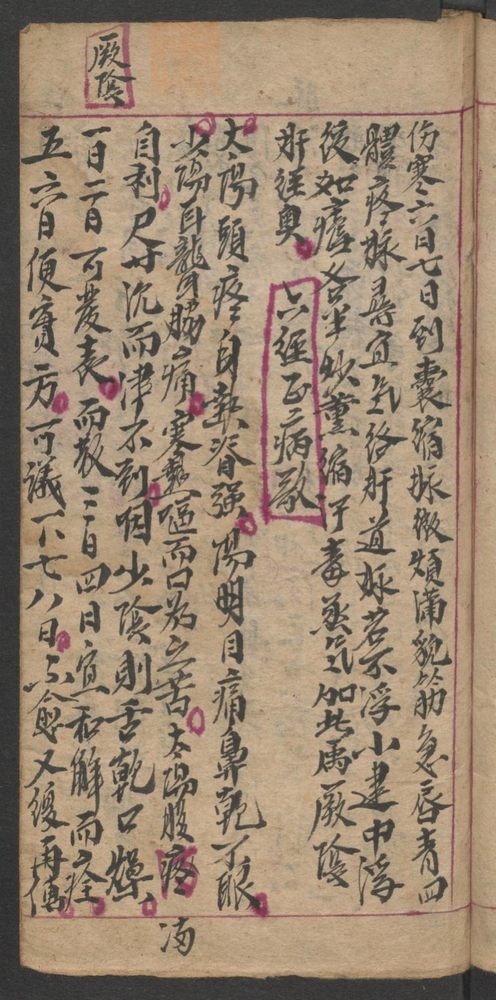 厥陰
傷寒六日七日到囊縮脉微煩滿貌筋急唇青四
體疼脉尋宜氣絡肝道脉若不浮小建中浮
後如瘧各半炒薰縮汗毒蒸氣如此為厥陰
肝經奧
六經正病歌
太陽頭疼自熱脊強陽明目痛鼻乾不眠
少陽耳聾脇痛寒熱嘔而口為之苦太陽腹疼
滿
自利尺寸沉而津不到咽少陰則舌乾口燥
一日二日可發表而散三日四日宜和解而痊
五六日便實方可議下七八日不愈又復再傳